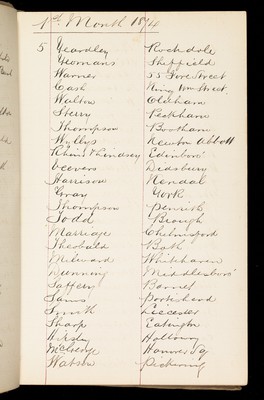 1st Month 1874
5 Yeardley Rochdale
Yeomans Sheffield
Warner 55 Fore Street
Cash King Wm Street
Walton Oldham
Sterry Peckham
Thompson Bootham
Wyllys Newton Abbott
Rhind & Lindsey Edinboro'
Veevers Didsbury
Harrison Kendal
Gray York
Thompson Penrith
Todd Brough
Marriage Chelmsford
Theobald Bath
Milward Whitehaven
Dunning Middlesboro'
Saffery Barnet
Sams Portishead
Smith Leicester
Sharp Eatington
Holloway
Hanover Sq
Watson Pickering